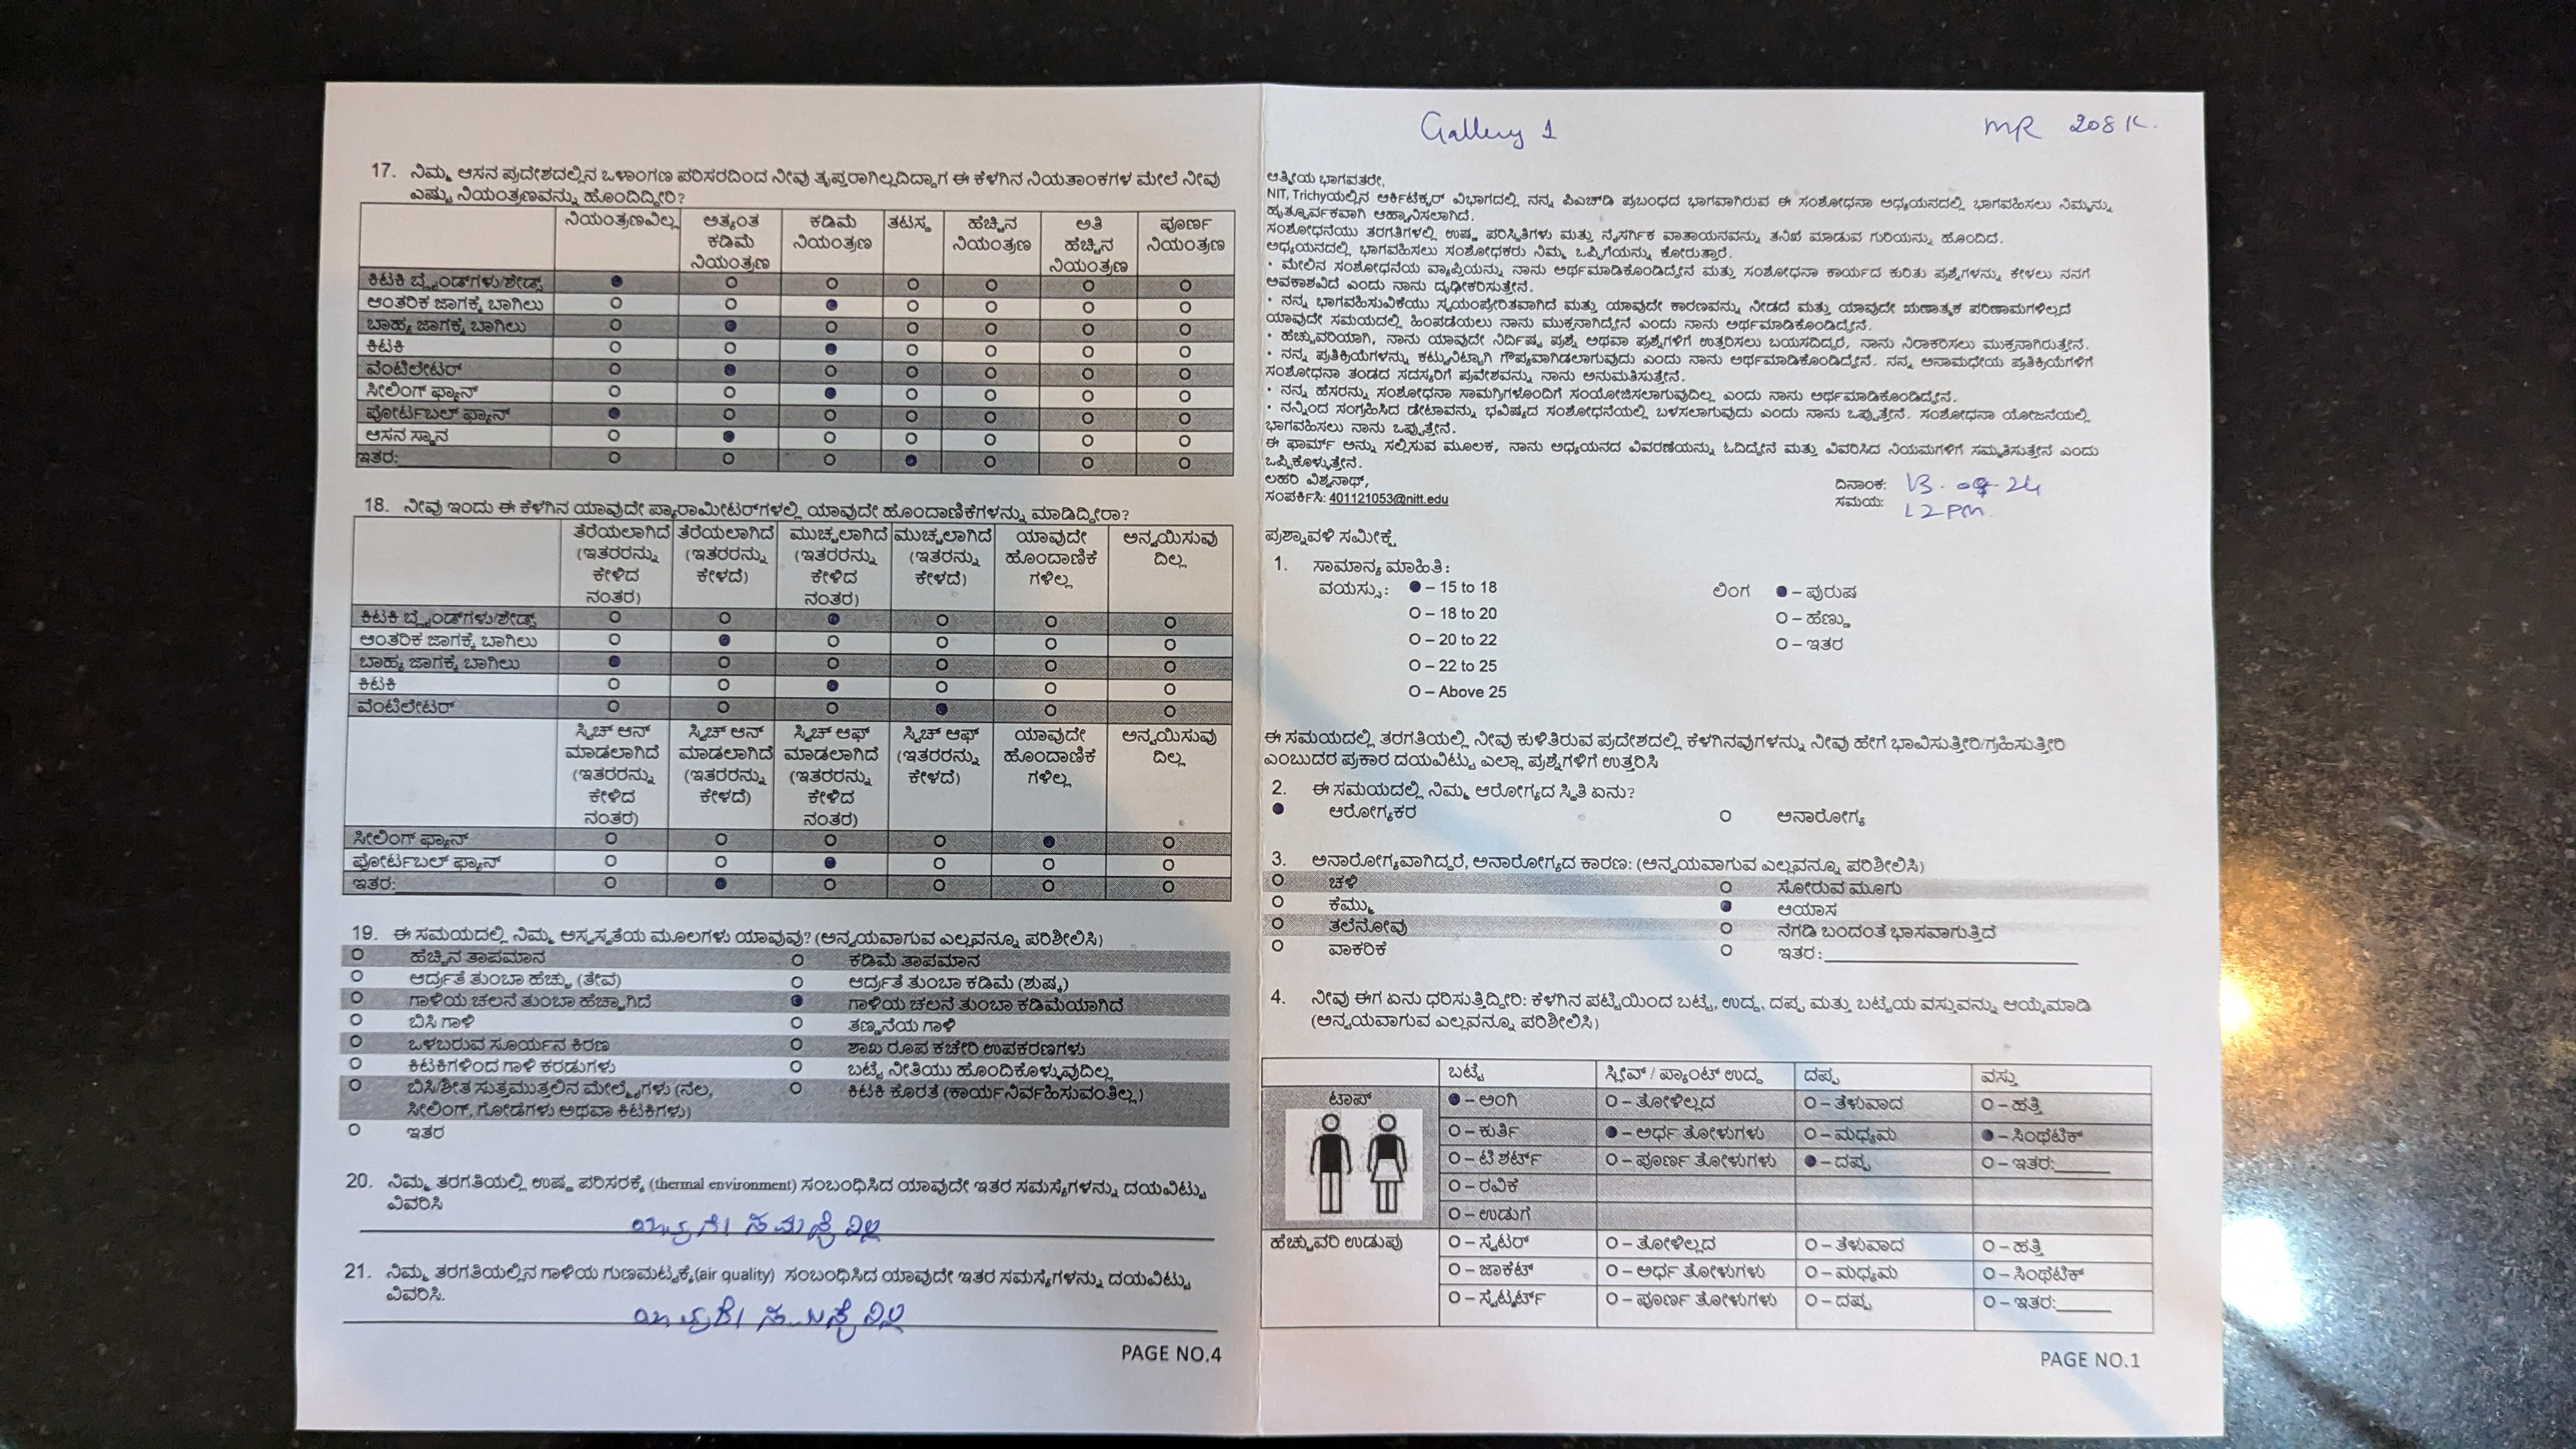 17. ನಿಮ್ಮ ಆಸನ ಪ್ರದೇಶದಲ್ಲಿನ ಒಳಾಂಗಣ ಪರಿಸರದಿಂದ ನೀವು ತೃಪ್ತರಾಗಿಲ್ಲದಿದ್ದಾಗ ಈ ಕೆಳಗಿನ ನಿಯತಾಂಕಗಳ ಮೇಲೆ ನೀವು
ಎಷ್ಟು ನಿಯಂತ್ರಣವನ್ನು ಹೊಂದಿದ್ದೀರಿ?
ನಿಯಂತ್ರಣವಿಲ್ಲ ಅತ್ಯಂತ ಕಡಿಮೆ ನಿಯಂತ್ರಣ ಕಡಿಮೆ ನಿಯಂತ್ರಣ ತಟಸ್ಥ ಹೆಚ್ಚಿನ ನಿಯಂತ್ರಣ ಅತಿ ಹೆಚ್ಚಿನ ನಿಯಂತ್ರಣ ಪೂರ್ಣ ನಿಯಂತ್ರಣ
ಕಿಟಕಿ ಬ್ಲೈಂಡ್‌ಗಳು/ಶೇಡ್ಸ್
ಆಂತರಿಕ ಜಾಗಕ್ಕೆ ಬಾಗಿಲು
ಬಾಹ್ಯ ಜಾಗಕ್ಕೆ ಬಾಗಿಲು
ಕಿಟಕಿ
ವೆಂಟಿಲೇಟರ್
ಸೀಲಿಂಗ್ ಫ್ಯಾನ್
ಪೋರ್ಟಬಲ್ ಫ್ಯಾನ್
ಆಸನ ಸ್ಥಾನ
ಇತರ:
18. ನೀವು ಇಂದು ಈ ಕೆಳಗಿನ ಯಾವುದೇ ಪ್ಯಾರಾಮೀಟರ್‌ಗಳಲ್ಲಿ ಯಾವುದೇ ಹೊಂದಾಣಿಕೆಗಳನ್ನು ಮಾಡಿದ್ದೀರಾ?
ತೆರೆಯಲಾಗಿದೆ (ಇತರರನ್ನು ಕೇಳಿದ ನಂತರ) ತೆರೆಯಲಾಗಿದೆ (ಇತರರನ್ನು ಕೇಳದೆ) ಮುಚ್ಚಲಾಗಿದೆ (ಇತರರನ್ನು ಕೇಳಿದ ನಂತರ) ಮುಚ್ಚಲಾಗಿದೆ (ಇತರರನ್ನು ಕೇಳದೆ) ಯಾವುದೇ ಹೊಂದಾಣಿಕೆ ಗಳಿಲ್ಲ ಅನ್ವಯಿಸುವು ದಿಲ್ಲ
ಕಿಟಕಿ ಬ್ಲೈಂಡ್‌ಗಳು/ಶೇಡ್ಸ್
ಆಂತರಿಕ ಜಾಗಕ್ಕೆ ಬಾಗಿಲು
ಬಾಹ್ಯ ಜಾಗಕ್ಕೆ ಬಾಗಿಲು
ಕಿಟಕಿ
ವೆಂಟಿಲೇಟರ್
ಸ್ವಿಚ್ ಆನ್ ಮಾಡಲಾಗಿದೆ (ಇತರರನ್ನು ಕೇಳಿದ ನಂತರ) ಸ್ವಿಚ್ ಆನ್ ಮಾಡಲಾಗಿದೆ (ಇತರರನ್ನು ಕೇಳದೆ) ಸ್ವಿಚ್ ಆಫ್ ಮಾಡಲಾಗಿದೆ (ಇತರರನ್ನು ಕೇಳಿದ ನಂತರ) ಸ್ವಿಚ್ ಆಫ್ (ಇತರರನ್ನು ಕೇಳದೆ) ಯಾವುದೇ ಹೊಂದಾಣಿಕೆ ಗಳಿಲ್ಲ ಅನ್ವಯಿಸುವು ದಿಲ್ಲ
ಸೀಲಿಂಗ್ ಫ್ಯಾನ್
ಪೋರ್ಟಬಲ್ ಫ್ಯಾನ್
ಇತರ:
19. ಈ ಸಮಯದಲ್ಲಿ ನಿಮ್ಮ ಅಸ್ವಸ್ಥತೆಯ ಮೂಲಗಳು ಯಾವುವು? (ಅನ್ವಯವಾಗುವ ಎಲ್ಲವನ್ನೂ ಪರಿಶೀಲಿಸಿ)
ಹೆಚ್ಚಿನ ತಾಪಮಾನ ಕಡಿಮೆ ತಾಪಮಾನ
ಆರ್ದ್ರತೆ ತುಂಬಾ ಹೆಚ್ಚು (ತೇವ) ಆರ್ದ್ರತೆ ತುಂಬಾ ಕಡಿಮೆ (ಶುಷ್ಕ)
ಗಾಳಿಯ ಚಲನೆ ತುಂಬಾ ಹೆಚ್ಚಾಗಿದೆ ಗಾಳಿಯ ಚಲನೆ ತುಂಬಾ ಕಡಿಮೆಯಾಗಿದೆ
ಬಿಸಿ ಗಾಳಿ ತಣ್ಣನೆಯ ಗಾಳಿ
ಒಳಬರುವ ಸೂರ್ಯನ ಕಿರಣ ಶಾಖ ರೂಪ ಕಚೇರಿ ಉಪಕರಣಗಳು
ಕಿಟಕಿಗಳಿಂದ ಗಾಳಿ ಕರಡುಗಳು ಬಟ್ಟೆ ನೀತಿಯು ಹೊಂದಿಕೊಳ್ಳುವುದಿಲ್ಲ
ಬಿಸಿ/ಶೀತ ಸುತ್ತಮುತ್ತಲಿನ ಮೇಲ್ಮೈಗಳು (ನೆಲ, ಕಿಟಕಿ ಕೊರತೆ (ಕಾರ್ಯನಿರ್ವಹಿಸುವಂತಿಲ್ಲ)
ಸೀಲಿಂಗ್, ಗೋಡೆಗಳು ಅಥವಾ ಕಿಟಕಿಗಳು)
ಇತರ
20. ನಿಮ್ಮ ತರಗತಿಯಲ್ಲಿ ಉಷ್ಣ ಪರಿಸರಕ್ಕೆ (thermal environment) ಸಂಬಂಧಿಸಿದ ಯಾವುದೇ ಇತರ ಸಮಸ್ಯೆಗಳನ್ನು ದಯವಿಟ್ಟು
ವಿವರಿಸಿ
ಸಮಸ್ಯೆ ಇಲ್ಲ
21. ನಿಮ್ಮ ತರಗತಿಯಲ್ಲಿನ ಗಾಳಿಯ ಗುಣಮಟ್ಟಕ್ಕೆ(air quality) ಸಂಬಂಧಿಸಿದ ಯಾವುದೇ ಇತರ ಸಮಸ್ಯೆಗಳನ್ನು ದಯವಿಟ್ಟು
ವಿವರಿಸಿ.
PAGE NO.4
Gallery 1 MR 208 K.
ಆತ್ಮೀಯ ಭಾಗವತರೇ,
NIT, Trichyಯಲ್ಲಿನ ಆರ್ಕಿಟೆಕ್ಚರ್ ವಿಭಾಗದಲ್ಲಿ ನನ್ನ ಪಿಎಚ್‌ಡಿ ಪ್ರಬಂಧದ ಭಾಗವಾಗಿರುವ ಈ ಸಂಶೋಧನಾ ಅಧ್ಯಯನದಲ್ಲಿ ಭಾಗವಹಿಸಲು ನಿಮ್ಮನ್ನು
ಹೃತ್ಪೂರ್ವಕವಾಗಿ ಆಹ್ವಾನಿಸಲಾಗಿದೆ.
ಸಂಶೋಧನೆಯು ತರಗತಿಗಳಲ್ಲಿ ಉಷ್ಣ ಪರಿಸ್ಥಿತಿಗಳು ಮತ್ತು ನೈಸರ್ಗಿಕ ವಾತಾಯನವನ್ನು ತನಿಖೆ ಮಾಡುವ ಗುರಿಯನ್ನು ಹೊಂದಿದೆ.
ಅಧ್ಯಯನದಲ್ಲಿ ಭಾಗವಹಿಸಲು ಸಂಶೋಧಕರು ನಿಮ್ಮ ಒಪ್ಪಿಗೆಯನ್ನು ಕೋರುತ್ತಾರೆ.
• ಮೇಲಿನ ಸಂಶೋಧನೆಯ ವ್ಯಾಪ್ತಿಯನ್ನು ನಾನು ಅರ್ಥಮಾಡಿಕೊಂಡಿದ್ದೇನೆ ಮತ್ತು ಸಂಶೋಧನಾ ಕಾರ್ಯದ ಕುರಿತು ಪ್ರಶ್ನೆಗಳನ್ನು ಕೇಳಲು ನನಗೆ
ಅವಕಾಶವಿದೆ ಎಂದು ನಾನು ದೃಢೀಕರಿಸುತ್ತೇನೆ.
• ನನ್ನ ಭಾಗವಹಿಸುವಿಕೆಯು ಸ್ವಯಂಪ್ರೇರಿತವಾಗಿದೆ ಮತ್ತು ಯಾವುದೇ ಕಾರಣವನ್ನು ನೀಡದೆ ಮತ್ತು ಯಾವುದೇ ಋಣಾತ್ಮಕ ಪರಿಣಾಮಗಳಿಲ್ಲದೆ
ಯಾವುದೇ ಸಮಯದಲ್ಲಿ ಹಿಂಪಡೆಯಲು ನಾನು ಮುಕ್ತನಾಗಿದ್ದೇನೆ ಎಂದು ನಾನು ಅರ್ಥಮಾಡಿಕೊಂಡಿದ್ದೇನೆ.
• ಹೆಚ್ಚುವರಿಯಾಗಿ, ನಾನು ಯಾವುದೇ ನಿರ್ದಿಷ್ಟ ಪ್ರಶ್ನೆ ಅಥವಾ ಪ್ರಶ್ನೆಗಳಿಗೆ ಉತ್ತರಿಸಲು ಬಯಸದಿದ್ದರೆ, ನಾನು ನಿರಾಕರಿಸಲು ಮುಕ್ತನಾಗಿರುತ್ತೇನೆ.
• ನನ್ನ ಪ್ರತಿಕ್ರಿಯೆಗಳನ್ನು ಕಟ್ಟುನಿಟ್ಟಾಗಿ ಗೌಪ್ಯವಾಗಿಡಲಾಗುವುದು ಎಂದು ನಾನು ಅರ್ಥಮಾಡಿಕೊಂಡಿದ್ದೇನೆ. ನನ್ನ ಅನಾಮಧೇಯ ಪ್ರತಿಕ್ರಿಯೆಗಳಿಗೆ
ಸಂಶೋಧನಾ ತಂಡದ ಸದಸ್ಯರಿಗೆ ಪ್ರವೇಶವನ್ನು ನಾನು ಅನುಮತಿಸುತ್ತೇನೆ.
• ನನ್ನ ಹೆಸರನ್ನು ಸಂಶೋಧನಾ ಸಾಮಗ್ರಿಗಳೊಂದಿಗೆ ಸಂಯೋಜಿಸಲಾಗುವುದಿಲ್ಲ ಎಂದು ನಾನು ಅರ್ಥಮಾಡಿಕೊಂಡಿದ್ದೇನೆ.
• ನನ್ನಿಂದ ಸಂಗ್ರಹಿಸಿದ ಡೇಟಾವನ್ನು ಭವಿಷ್ಯದ ಸಂಶೋಧನೆಯಲ್ಲಿ ಬಳಸಲಾಗುವುದು ಎಂದು ನಾನು ಒಪ್ಪುತ್ತೇನೆ. ಸಂಶೋಧನಾ ಯೋಜನೆಯಲ್ಲಿ
ಭಾಗವಹಿಸಲು ನಾನು ಒಪ್ಪುತ್ತೇನೆ.
ಈ ಫಾರ್ಮ್ ಅನ್ನು ಸಲ್ಲಿಸುವ ಮೂಲಕ, ನಾನು ಅಧ್ಯಯನದ ವಿವರಣೆಯನ್ನು ಓದಿದ್ದೇನೆ ಮತ್ತು ವಿವರಿಸಿದ ನಿಯಮಗಳಿಗೆ ಸಮ್ಮತಿಸುತ್ತೇನೆ ಎಂದು
ಒಪ್ಪಿಕೊಳ್ಳುತ್ತೇನೆ.
ಲಹರಿ ವಿಶ್ವನಾಥ್, ದಿನಾಂಕ: 13.09.24
ಸಂಪರ್ಕಿಸಿ: 401121053@nitt.edu ಸಮಯ: 12 PM
ಪ್ರಶ್ನಾವಳಿ ಸಮೀಕ್ಷೆ
1. ಸಾಮಾನ್ಯ ಮಾಹಿತಿ:
ವಯಸ್ಸು: – 15 to 18 ಲಿಂಗ – ಪುರುಷ
– 18 to 20 – ಹೆಣ್ಣು
– 20 to 22 – ಇತರ
– 22 to 25
– Above 25
ಈ ಸಮಯದಲ್ಲಿ ತರಗತಿಯಲ್ಲಿ ನೀವು ಕುಳಿತಿರುವ ಪ್ರದೇಶದಲ್ಲಿ ಕೆಳಗಿನವುಗಳನ್ನು ನೀವು ಹೇಗೆ ಭಾವಿಸುತ್ತೀರಿ/ಗ್ರಹಿಸುತ್ತೀರಿ
ಎಂಬುದರ ಪ್ರಕಾರ ದಯವಿಟ್ಟು ಎಲ್ಲಾ ಪ್ರಶ್ನೆಗಳಿಗೆ ಉತ್ತರಿಸಿ
2. ಈ ಸಮಯದಲ್ಲಿ ನಿಮ್ಮ ಆರೋಗ್ಯದ ಸ್ಥಿತಿ ಏನು?
ಆರೋಗ್ಯಕರ ಅನಾರೋಗ್ಯ
3. ಅನಾರೋಗ್ಯವಾಗಿದ್ದರೆ, ಅನಾರೋಗ್ಯದ ಕಾರಣ: (ಅನ್ವಯವಾಗುವ ಎಲ್ಲವನ್ನೂ ಪರಿಶೀಲಿಸಿ)
ಚಳಿ ಸೋರುವ ಮೂಗು
ಕೆಮ್ಮು ಆಯಾಸ
ತಲೆನೋವು ನೆಗಡಿ ಬಂದಂತೆ ಭಾಸವಾಗುತ್ತಿದೆ
ವಾಕರಿಕೆ ಇತರ:
4. ನೀವು ಈಗ ಏನು ಧರಿಸುತ್ತಿದ್ದೀರಿ: ಕೆಳಗಿನ ಪಟ್ಟಿಯಿಂದ ಬಟ್ಟೆ, ಉದ್ದ, ದಪ್ಪ ಮತ್ತು ಬಟ್ಟೆಯ ವಸ್ತುವನ್ನು ಆಯ್ಕೆಮಾಡಿ
(ಅನ್ವಯವಾಗುವ ಎಲ್ಲವನ್ನೂ ಪರಿಶೀಲಿಸಿ)
ಬಟ್ಟೆ ಸ್ಲೀವ್ / ಪ್ಯಾಂಟ್ ಉದ್ದ ದಪ್ಪ ವಸ್ತು
ಟಾಪ್ – ಅಂಗಿ – ತೋಳಿಲ್ಲದ – ತೆಳುವಾದ – ಹತ್ತಿ
– ಕುರ್ತಿ – ಅರ್ಧ ತೋಳುಗಳು – ಮಧ್ಯಮ – ಸಿಂಥೆಟಿಕ್
– ಟಿ ಶರ್ಟ್ – ಪೂರ್ಣ ತೋಳುಗಳು – ದಪ್ಪ – ಇತರ:
– ರವಿಕೆ
– ಉಡುಗೆ
ಹೆಚ್ಚುವರಿ ಉಡುಪು – ಸ್ವೆಟರ್ – ತೋಳಿಲ್ಲದ – ತೆಳುವಾದ – ಹತ್ತಿ
– ಜಾಕೆಟ್ – ಅರ್ಧ ತೋಳುಗಳು – ಮಧ್ಯಮ – ಸಿಂಥೆಟಿಕ್
– ಸ್ವೆಟ್ಶರ್ಟ್ – ಪೂರ್ಣ ತೋಳುಗಳು – ದಪ್ಪ – ಇತರ:
PAGE NO.1